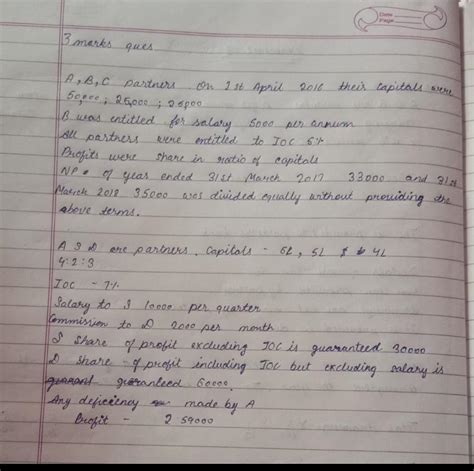 Date
Page
3 marks ques
A, B, C partners. On 1st April 2016 their capitals were
50,000 ; 25,000 ; 25000
B was entitled for salary 5000 per annum
All partners were entitled to IOC 5%
Profits were share in ratio of capitals
NP of year ended 31st March 2017 33000 and 31st
March 2018 35000 was divided equally without providing the
above terms.
A S D are partners. Capitals - 6L, 5L 4L
4:2:3
IOC - 7%
Salary to S 10000 per quarter
Commission to D 2000 per month
S share of profit excluding IOC is guaranteed 30000
D share of profit including IOC but excluding salary is
guaranteed 60000.
Any deficiency made by A
Profit - 2 59000